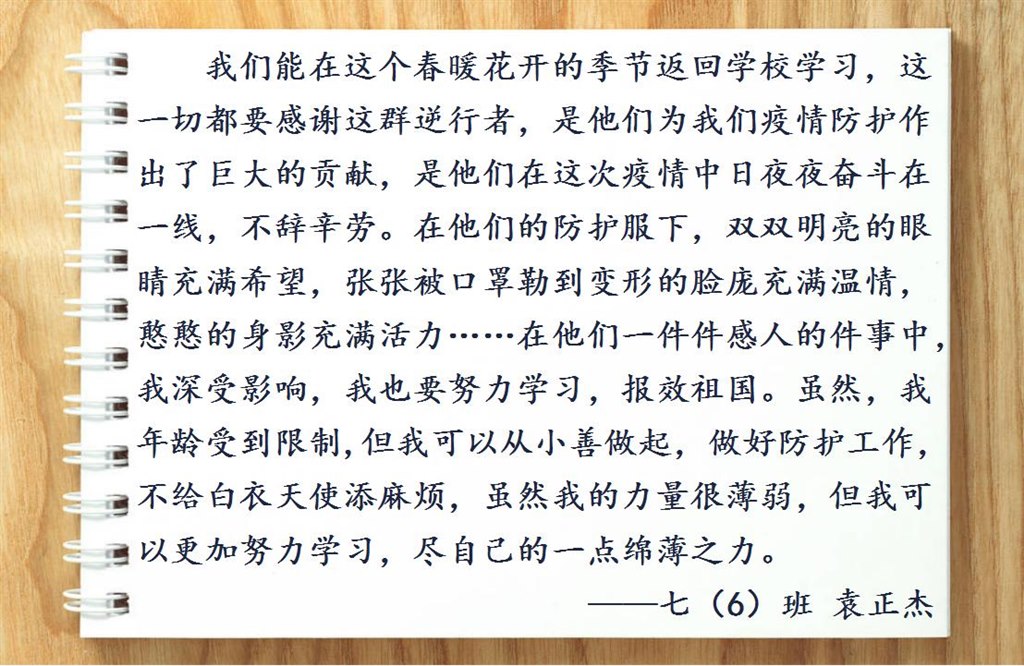 我们能在这个春暖花开的季节返回学校学习，这
一切都要感谢这群逆行者，是他们为我们疫情防护作
出了巨大的贡献，是他们在这次疫情中日夜夜奋斗在
一线，不辞辛劳。在他们的防护服下，双双明亮的眼
睛充满希望，张张被口罩勒到变形的脸庞充满温情，
憨憨的身影充满活力……在他们一件件感人的件事中，
我深受影响，我也要努力学习，报效祖国。虽然，我
年龄受到限制,但我可以从小善做起，做好防护工作，
不给白衣天使添麻烦，虽然我的力量很薄弱，但我可
以更加努力学习，尽自己的一点绵薄之力。
——七（6）班 袁正杰